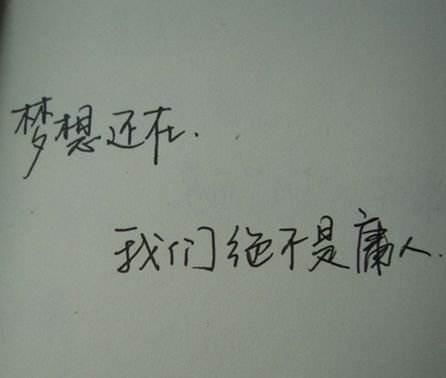 梦想还在.
我们绝不是庸人.